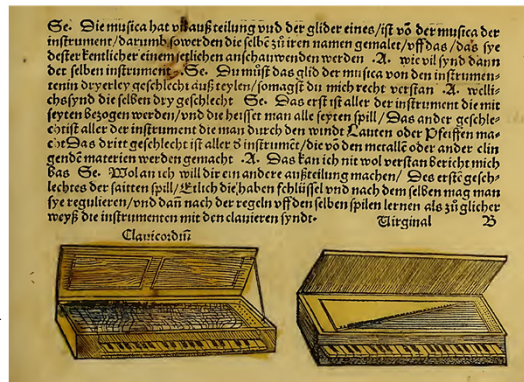 Se. Die musica hat vil außteilung vnd der glider eines/ist vō der musica der
instrument/darumb so werden die selbē zů iren namen gemalet/vff das/das sye
dester kentlicher einem ietlichen anschauwenden werden .A. wie vil synd dann
der selben instrument. Se. Du můst das glid der musica von den instrumen-
ten in dryerley geschlecht auß teylen/so magst du mich recht verstan .A. welli-
chs synd die selben dry geschlecht Se. Das erst ist aller der instrument die mit
seyten bezogen werden/vnd die heisset man alle seyten spill/Das ander geschle-
cht ist aller der instrument die man durch den windt Lauten oder Pfeiffen ma-
cht Das dritt geschlecht ist aller d instrumēt/die vō den metallē oder ander clin
gendē materien werden gemacht .A. Das kan ich nit wol verstan bericht mich
bas Se. Wolan ich will dir ein andere außteilung machen/ Des erstē gesch-
lechtes der saitten spill/Etlich die haben schlüssel vnd nach dem selben mag man
sye regulieren/vnd dañ nach der regeln vff den selben spilen lernen als zů glicher
weyß die instrumenten mit den clauieren syndt.
Virginal B
Clauicordiū